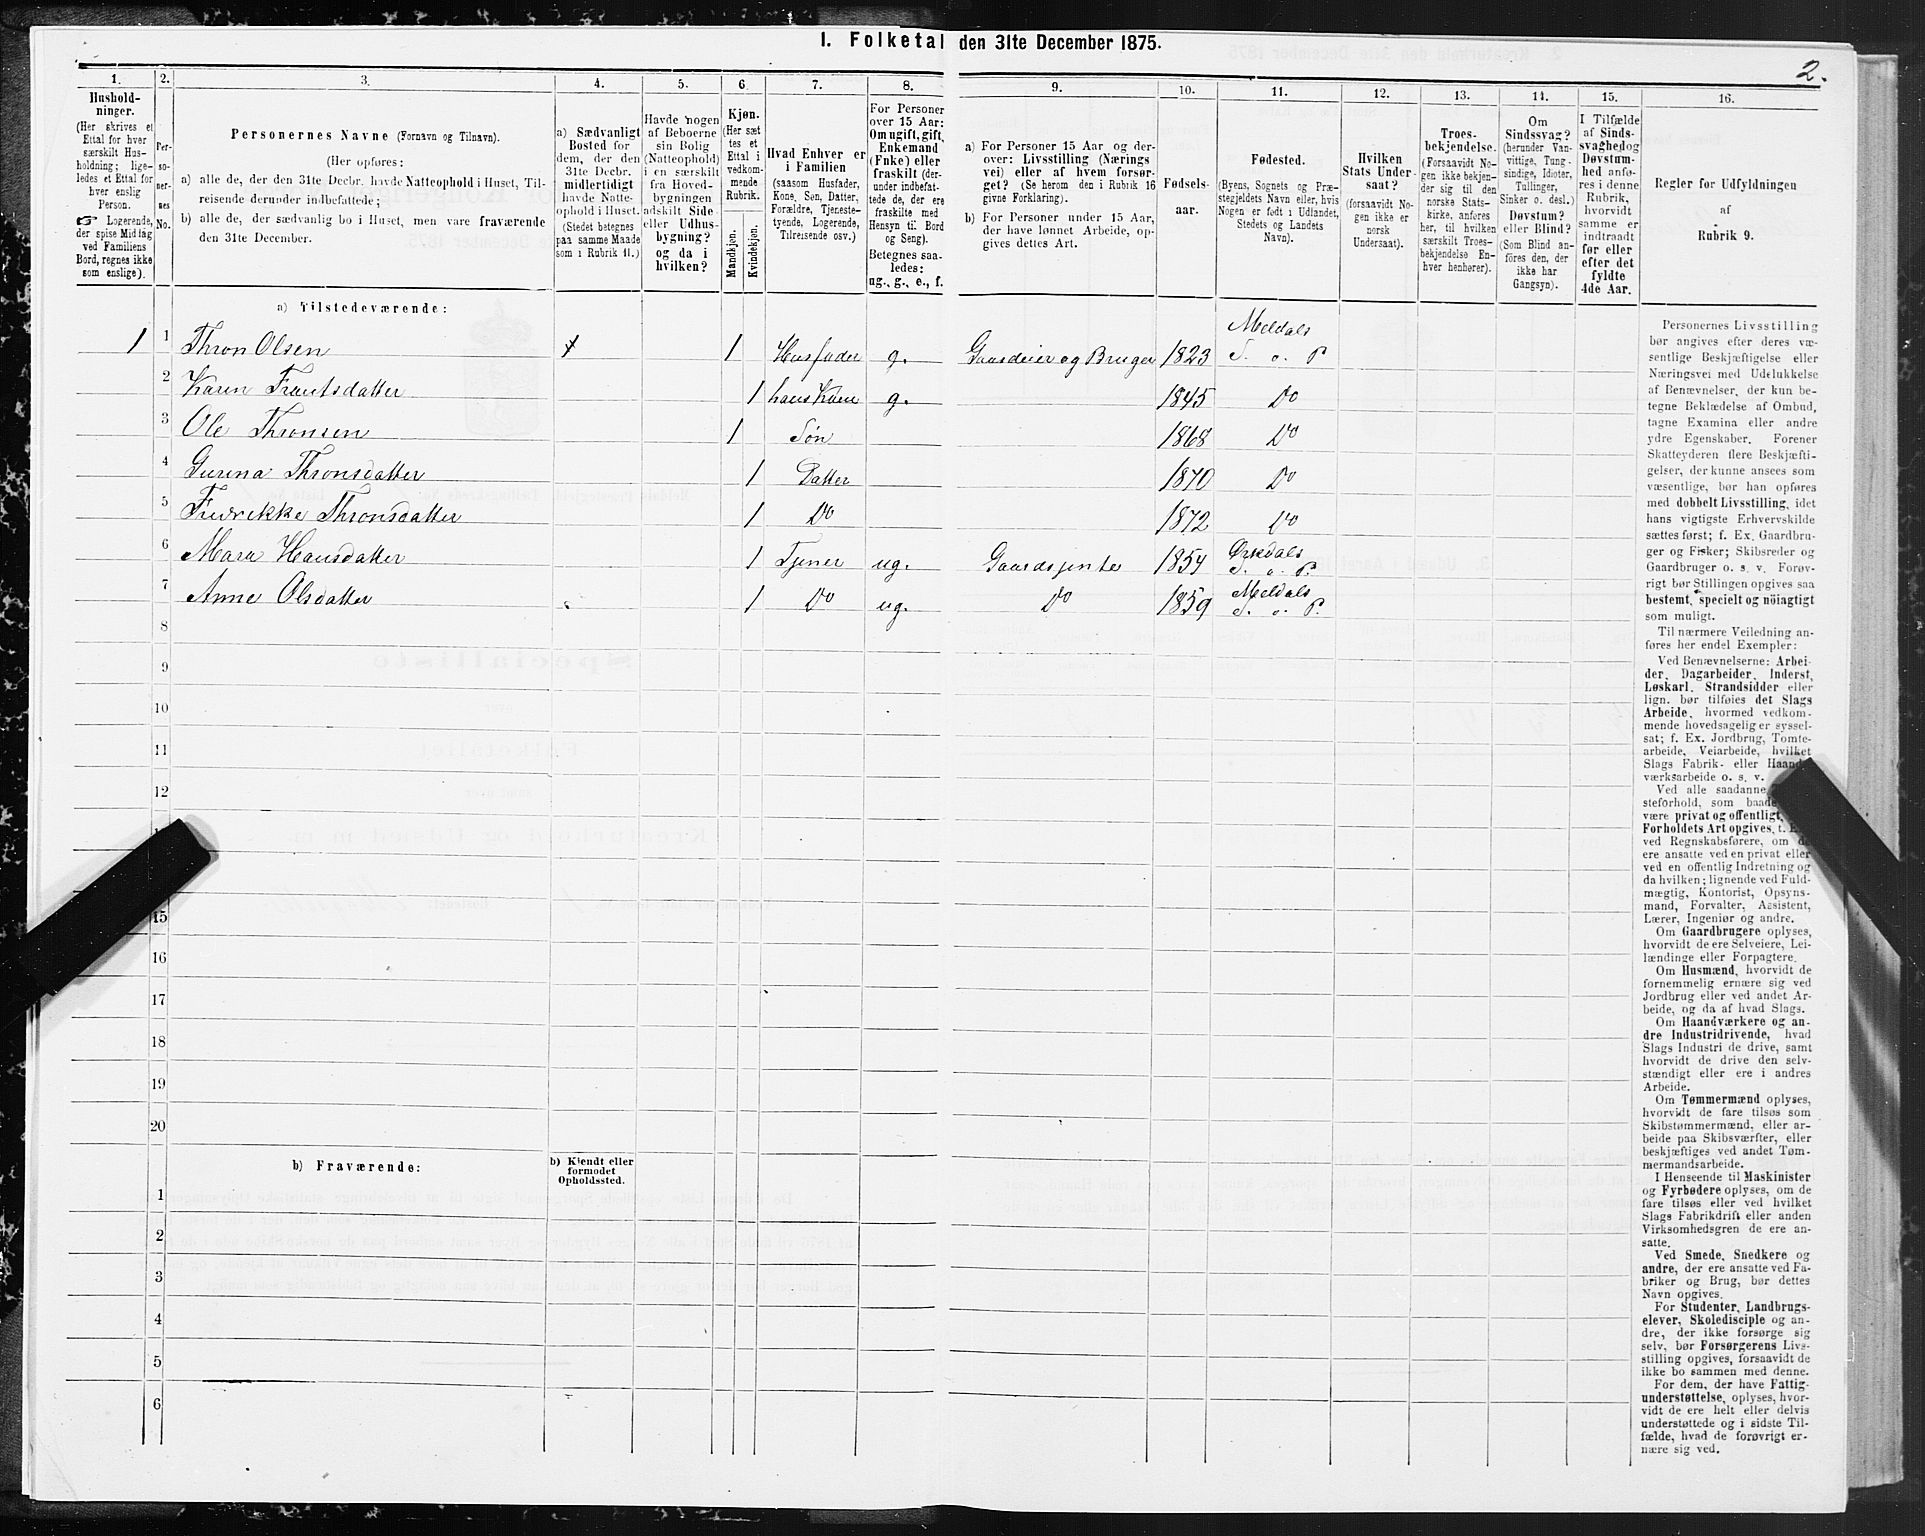 I. Folketal den 31te December 1875.
2.
1.
Hushold-
ninger.
(Her skrives et
Ettal for hver
særskilt Hus-
holdning; lige-
ledes et Ettal for
hver enslig
Person.
Logerende,
der spise Middag
ved Familiens
Bord, regnes ikke
som enslige).
2.
Per-
so-
ner-
nes
No.
3.
Personernes Navne (Fornavn og Tilnavn).
(Her opføres:
a) alle de, der den 31te Decbr. havde Natteophold i Huset, Til-
reisende derunder indbefattede;
b) alle de, der sædvanlig bo i Huset, men vare fraværende
den 31te December.
4.
a) Sædvanligt
Bosted for
dem, der den
31te Decbr.
midlertidigt
havde Natte-
ophold i Huset.
(Stedet betegnes
paa samme Maade
som i Rubrik 11.)
5.
Havde nogen
af Beboerne
sin Bolig
(Natteophold)
i en særskilt
fra Hoved-
bygningen
adskilt Side-
eller Udhus-
bygning?
og da i
hvilken?
6.
Kjøn.
(Her sæt-
tes et
Ettal i
vedkom-
mende
Rubrik.
Mandkjøn.
Kvindekjøn.
7.
Hvad Enhver er
i Familien
(saasom Husfader,
Kone, Søn, Datter,
Forældre, Tjeneste-
tyende, Logerende,
Tilreisende osv.)
8.
For Personer
over 15 Aar:
Om ugift, gift,
Enkemand
(Enke) eller
fraskilt (der-
under indbefat-
tede de, der ere
fraskilte med
Hensyn til Bord
og Seng).
Betegnes saa-
ledes:
ug., g., e., f.
9.
a) For Personer 15 Aar og der-
over: Livsstilling (Nærings
vei) eller af hvem forsør-
get? (Se herom den i Rubrik 16
givne Forklaring).
b) For Personer under 15 Aar,
der have lønnet Arbeide, op-
gives dettes Art.
10.
Fødsels-
aar.
11.
Fødested.
(Byens, Sognets og Præ-
stegjeldets Navn eller, hvis
Nogen er født i Udlandet,
Stedets og Landets
Navn).
12.
Hvilken
Stats Under-
saat?
(forsaavidt No-
gen ikke er
norsk
Undersaat).
13.
Troes-
bekjendelse.
(Forsaavidt No-
gen ikke bekjen-
der sig til den
norske Stats-
kirke, anføres
her, til hvilken
særskilt Troes-
bekjendelse En-
hver henhører).
14.
Om
Sindssvag?
(herunder Van-
vittige, Tung-
sindige, Idioter,
Tullinger,
Sinker o. desl.)
Døvstum?
eller Blind?
(Som Blind an-
føres den, der
ikke har
Gangsyn).
15.
I Tilfælde
af Sinds-
svaghed og
Døvstum-
hed anfø-
res i denne
Rubrik,
hvorvidt
samme er
indtraadt
før eller
efter det
fyldte
4de Aar.
16.
Regler for Udfyldningen
af
Rubrik 9.
a) Tilstedeværende:
1 1 Thron Olsen x 1 Husfader g. Gaardeier og Bruger 1823 Meldals S. o. P.
2 Karen Frantsdatter 1 hans Kone g. 1845 Do
3 Ole Thronsen 1 Søn 1868 Do
4 Gurina Thronsdatter 1 Datter 1870 Do
5 Fredrikke Thronsdatter 1 Do 1872 Do
6 Mara Hansdatter 1 Tjener ug. Gaardsjente 1854 Ørkdals S. o. P.
7 Anne Olsdatter 1 Do ug. Do 1859 Meldals S. o. P.
8
9
10
11
12
15
16
17
18
19
20
b) Fraværende:
b) Kjendt eller
formodet
Opholdssted.
1
2
3
4
5
6
Personernes Livsstilling
bør angives efter deres væ-
sentlige Beskjæftigelse eller
Næringsvei med Udelukkelse
af Benævnelser, der kun be-
tegne Beklædelse af Ombud,
tagne Examina eller andre
ydre Egenskaber. Forener
Skatteyderen flere Beskjæfti-
gelser, der kunne ansees som
væsentlige, bør han opføres
med dobbelt Livsstilling, idet
hans vigtigste Erhvervskilde
sættes først; f. Ex. Gaardbru-
ger og Fisker; Skibsreder og
Gaardbruger o. s. v. Forøv-
rigt bør Stillingen opgives saa
bestemt, specielt og nöiagtigt
som muligt.
Til nærmere Veiledning an-
føres her endel Exempler:
Ved Benævnelserne: Arbei-
der, Dagarbeider, Inderst,
Løskarl, Strandsidder eller
lign. bør tilføies det Slags
Arbeide, hvormed vedkom-
mende hovedsagelig er syssel-
sat; f. Ex. Jordbrug, Tomte-
arbeide, Veiarbeide, hvilket
Slags Fabrik- eller Haand-
værksarbeide o. s. v.
Ved alle saadanne
steforhold, som baade
være privat og offentligt,
Forholdets Art opgives, t. E
ved Regnskabsførere, om d
ere ansatte ved en privat eller
ved en offentlig Indretning og
da hvilken; lignende ved Fuld-
mægtig, Kontorist, Opsyns-
mand, Forvalter, Assistent,
Lærer, Ingeniør og andre.
Om Gaardbrugere oplyses,
hvorvidt de ere Selveiere, Lei-
lændinge eller Forpagtere.
Om Husmænd, hvorvidt de
fornemmelig ernære sig ved
Jordbrug eller ved andet Ar-
beide, og da af hvad Slags.
Om Haandværkere og an-
dre Industridrivende, hvad
Slags Industri de drive, samt
hvorvidt de drive den selv-
stændigt eller ere i andres
Arbeide.
Om Tømmermænd oplyses,
hvorvidt de fare tilsøs som
Skibstømmermænd, eller ar-
beide paa Skibsværfter, eller
beskjæftiges ved andet Tøm-
mermandsarbeide.
I Henseende til Maskinister
og Fyrbødere oplyses, om de
fare tilsøs eller ved hvilket
Slags Fabrikdrift eller anden
Virksomhedsgren de ere an-
satte.
Ved Smede, Snedkere og
andre, der ere ansatte ved Fa-
briker og Brug, bør dettes
Navn opgives.
For Studenter, Landbrugs-
elever, Skoledisciple og an-
dre, der ikke forsørge sig
selv, bør Forsørgerens Livs-
stilling opgives, forsaavidt de
ikke bo sammen med denne.
For dem, der have Fattig-
understøttelse, oplyses, hvor-
vidt de ere helt eller delvis
understøttede og i sidste Til-
fælde, hvad de forøvrigt er-
nære sig ved.